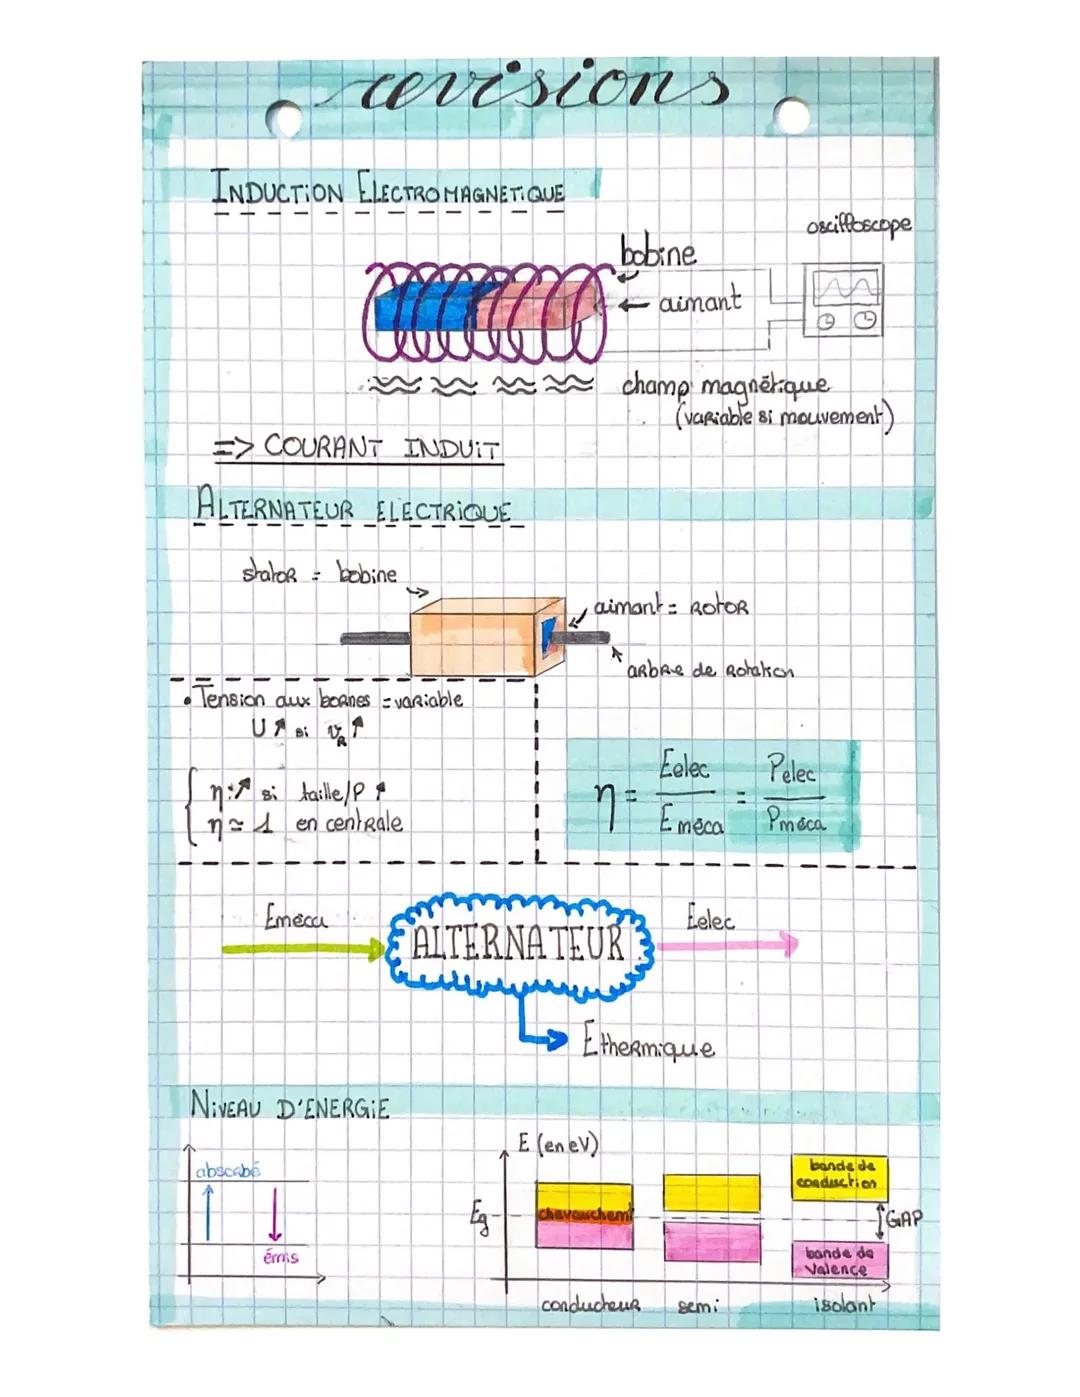 revisions
INDUCTION ELECTROMAGNETIQUE
oscilloscope
bobine
aimant
champ magnétique
(variable si mouvement)
=> COURANT INDUIT
ALTERNATEUR ELECTRIQUE
stator = bobine
aimant = ROTOR
arbre de rotation
• Tension aux bornes = variable
U↗ si vR↑
η:↗ si taille/P↑
η≃1 en centrale
η = Eelec/Eméca = Pelec/Pméca
Eméca
ALTERNATEUR
Eelec
Ethermique
NIVEAU D'ENERGIE
absorbé
émis
E (en eV)
Eg
chevauchemt
bande de
conduction
GAP
bande de
valence
conducteur semi isolant